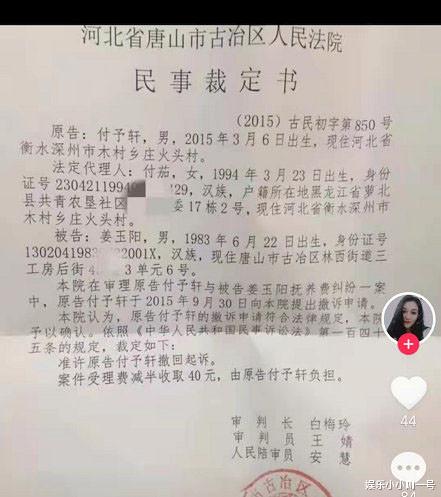 河北省唐山市古冶区人民法院
民事裁定书
(2015)古民初字第850号
原告：付予轩，男，2015年3月6日出生，现住河北省
衡水深州市木村乡庄火头村。
法定代理人：付茄，女，1994年3月23日出生，身份
证号230421199 129，汉族，户籍所在地黑龙江省萝北
县共青农垦社区 委17栋2号，现住河北省衡水深州市
木村乡庄火头村。
被告：姜玉阳，男，1983年6月22日出生，身份证号
130204198 2001X，汉族，现住唐山市古冶区林西街道三
工房后街4 3单元6号。
本院在审理原告付予轩与被告姜玉阳抚养费纠纷一案
中，原告付予轩于2015年9月30日向本院提出撤诉申请。
本院认为，原告付予轩的撤诉申请符合法律规定，本院
予以确认。依照《中华人民共和国民事诉讼法》第一百四十
五条的规定，裁定如下：
准许原告付予轩撤回起诉。
案件受理费减半收取40元，由原告付予轩负担。
审判长 白梅玲
审判员 王婧
人民陪审员 安慧
44
84
娱乐小小叫一号